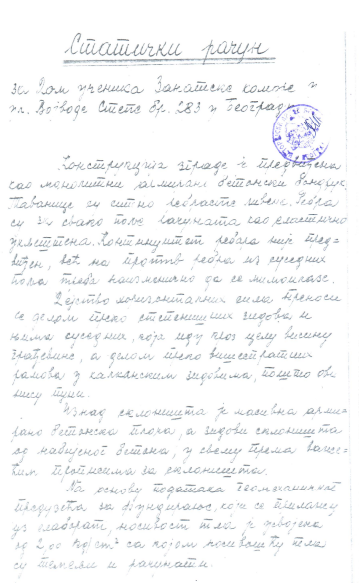 Статички рачун
за Дом ученика Занатске коморе у
ул. Војводе Степе бр. 283 у Београду
Конструкција зграде је предвиђена
као монолитни армирано бетонски
Таванице су ситно ребрасте ливене. Ребра
су за свако поље рачуната као еластично
уклештена. Континуитет ребара није пред-
виђен, већ на против ребра из суседних
поља треба наизменично да се мимоилазе.
Дејство хоризонталних сила преноси
се делом преко степенишних зидова и
њима суседних, који иду кроз целу висину
а делом преко вишеспратних
рамова у калканским зидовима, пошто ови
нису пуни.
Изнад склоништа је масивна арми-
рано бетонска плоча, а зидови склоништа
од набијеног бетона, у свему према важе-
ћим прописима за склоништа.
На основу података геомеханичког
предузећа за фундирање, који се прилажу
уз елаборат, носивост тла је усвојена
од 2,00 kg/cm² са којом носивошћу тла
су темељи и рачунати.